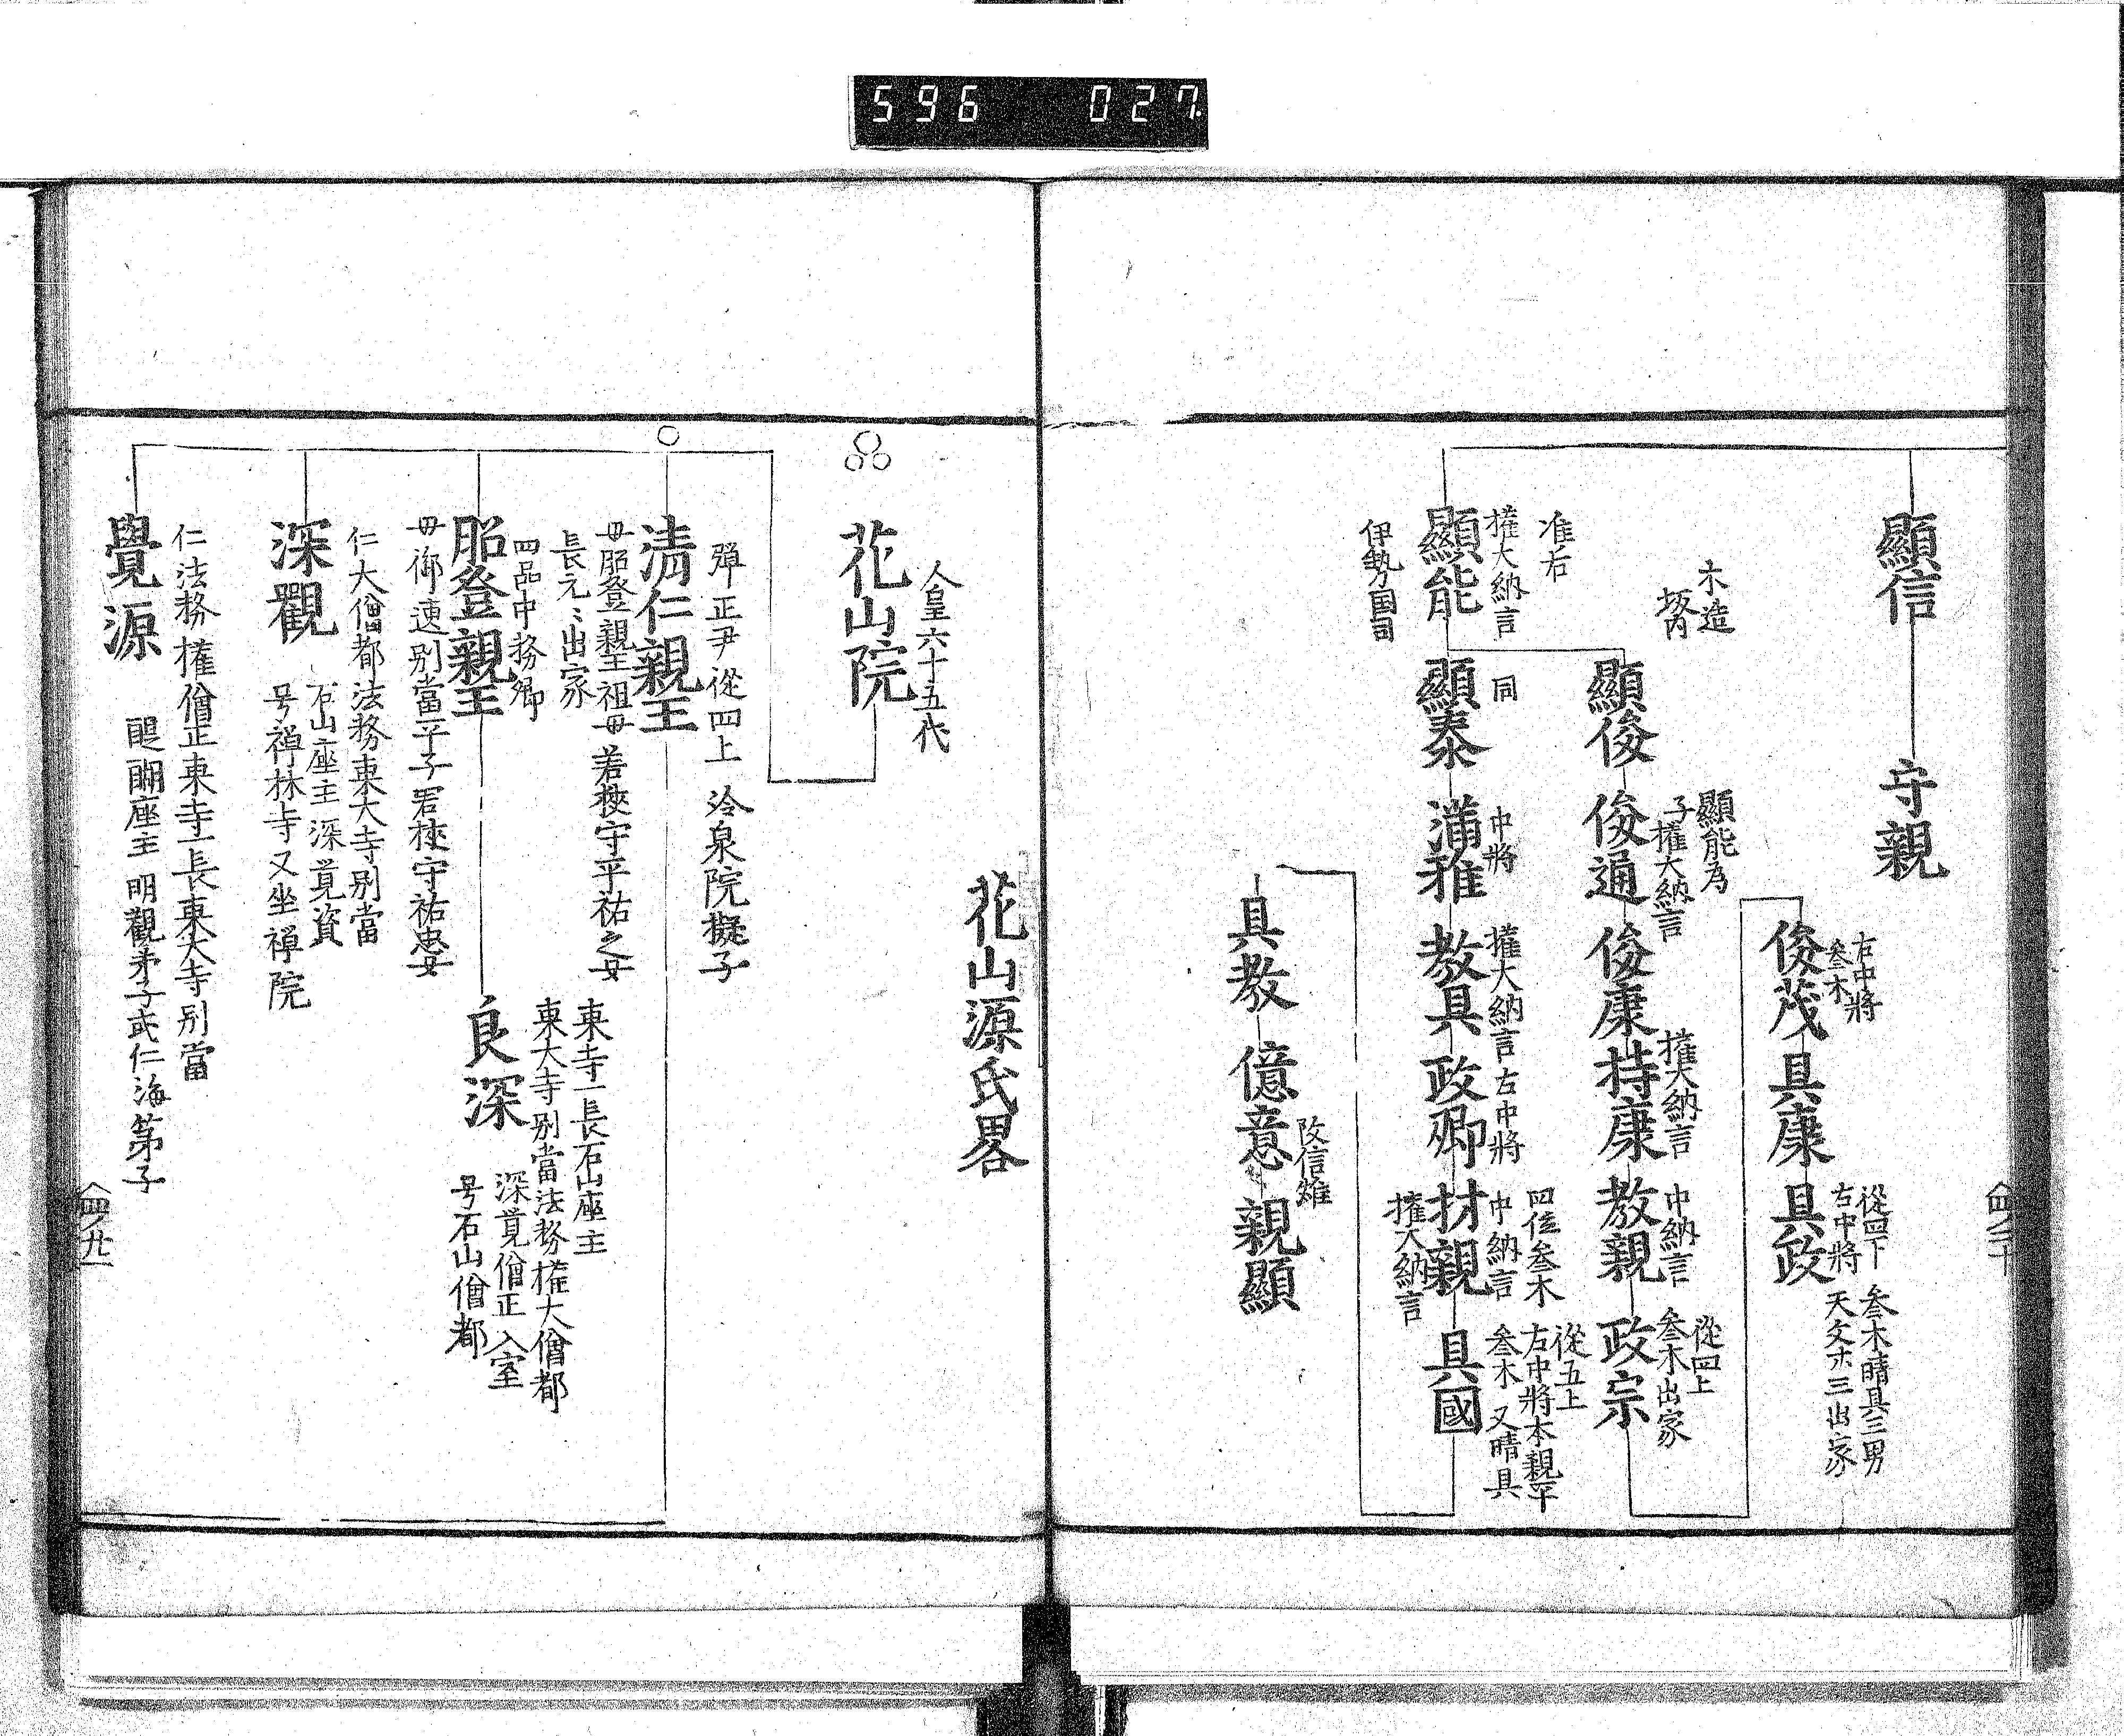 596 027
顯信
守親
右中將
叅木
俊茂
具康
從四下
右中將
叅木晴具三男
天文十三出家
具政
木造
坂内
顯俊
顯能為
子權大納言
俊通
俊康
權大納言
持康
中納言
教親
從四上
叅木出家
政宗
准后
權大納言
顯能
伊勢国司
同
顯泰
中將
滿雅
權大納言左中將
教具
政卿
四位叅木
中納言
材親
權大納言
從五上
右中將本親平
叅木又晴具
具國
具教
改信雄
億意
親顯
花山源氏畧
人皇六十五代
花山院
彈正尹從四上 冷泉院擬子
清仁親王
母昭登親王祖母若狹守平祐之女
長元〻出家
四品中務卿
昭登親王
母御匣別當平子若狹守祐忠女
東寺一長石山座主
東大寺別當法務權大僧都
良深
深覓僧正入室
号石山僧都
仁大僧都法務東大寺別當
深觀
石山座主深覓資
号禅林寺又坐禅院
仁法務權僧正東寺一長東大寺別當
覺源
醍醐座主明觀弟子或仁海第子